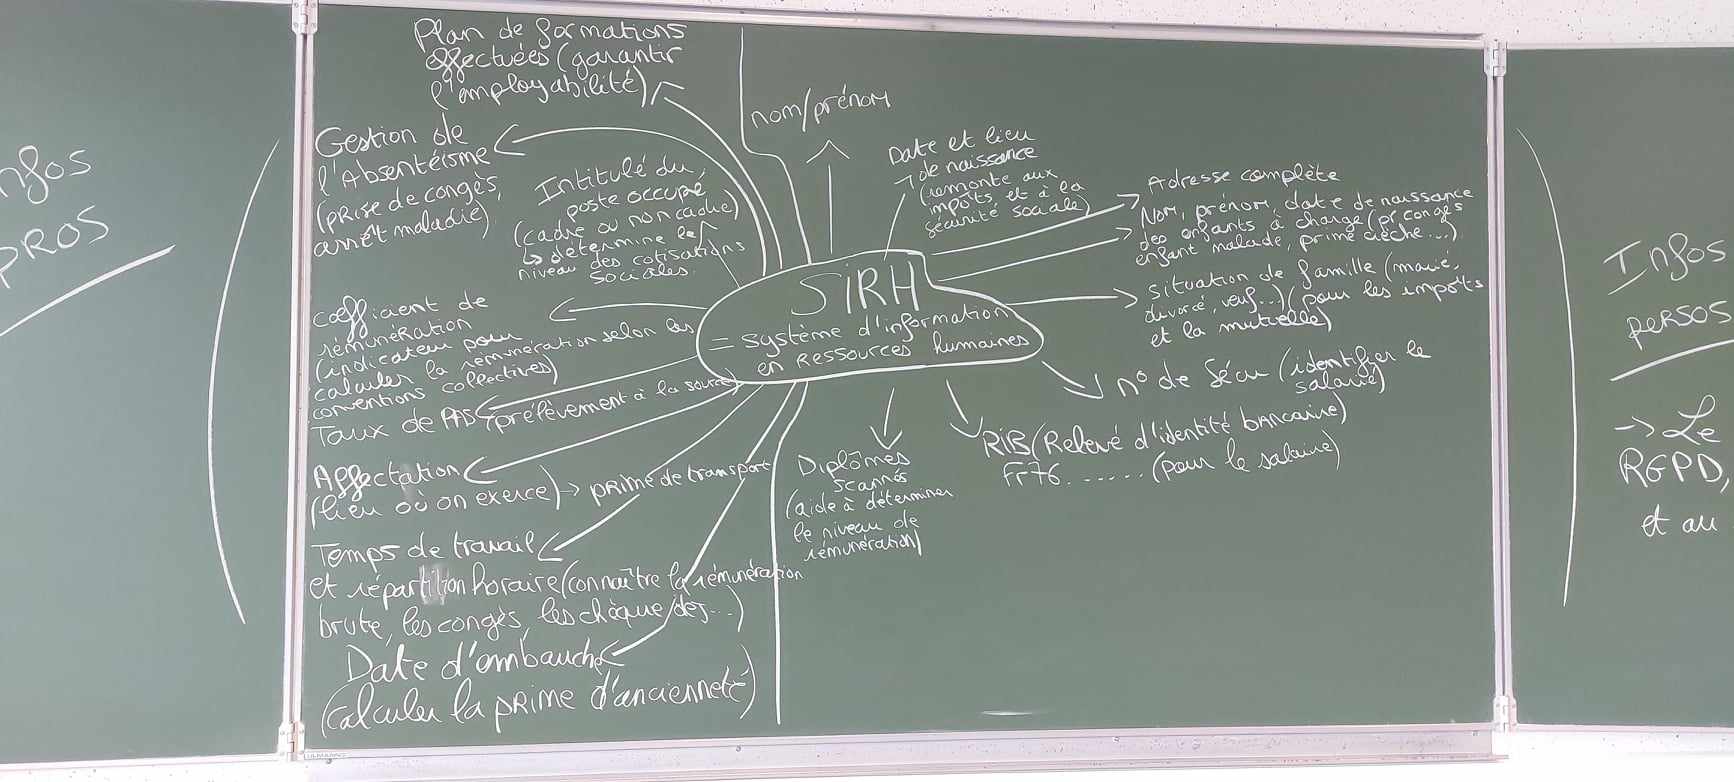 nfos
PROS
Plan de formations
effectuées (garantir
l'employabilité)
Gestion de
l'Absentéisme
(prise de congés,
arrêt maladie)
Intitulé du
poste occupé
(cadre ou non cadre)
↳ détermine le
niveau des cotisations
sociales.
coefficient de
rémunération
(indicateur pour
calculer la rémunération selon les
conventions collectives)
Taux de PAS (prélèvement à la source)
Affectation
(lieu où on exerce) → prime de transport
Temps de travail
et répartition horaire (connaître la rémunération
brute, les congés, les chèque dej...)
Date d'embauche
(calculer la prime d'ancienneté)
SIRH
= système d'information
en Ressources humaines
nom/prénom
Date et lieu
de naissance
(remonte aux
impôts et à la
sécurité sociale)
Adresse complète
Nom, prénom, date de naissance
des enfants à charge (pr congés
enfant malade, prime crèche...)
situation de famille (marié,
divorcé, veuf...) (pour les impôts
et la mutuelle)
n° de Sécu (identifier le
salarié)
RiB (Relevé d'identité bancaire)
Fr76....... (pour le salaire)
Diplômes
scannés
(aide à déterminer
le niveau de
rémunération)
Infos
persos
→ Le
RGPD,
et au